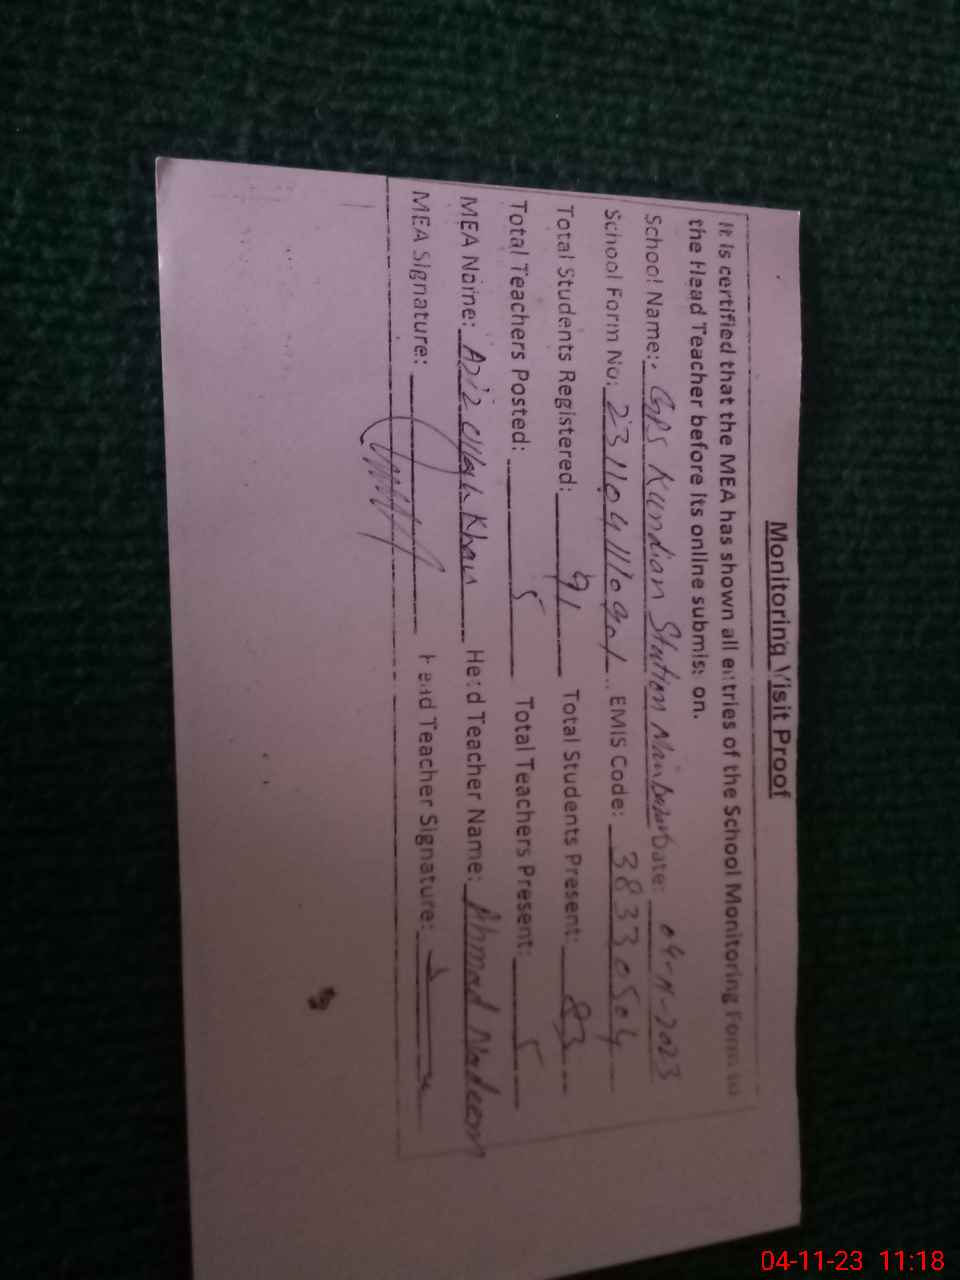 Monitoring Visit Proof
It is certified that the MEA has shown all entries of the School Monitoring Form to
the Head Teacher before its online submission.
School Name: GPS Kundian Station Date: 04-11-2023
School Form No: 231104111091 EMIS Code: 38330504
Total Students Registered: 91 Total Students Present: 83
Total Teachers Posted: 5 Total Teachers Present: 5
MEA Name: Aziz ullah Khan Head Teacher Name: Ahmad Nadeem
MEA Signature: Head Teacher Signature:
04-11-23 11:18